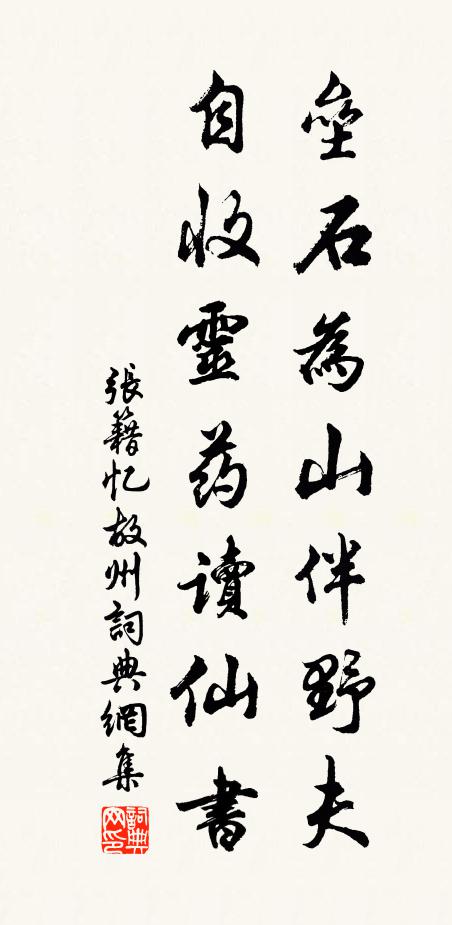 壘石為山伴野夫
自收靈药讀仙書
張籍忆故州詞典網集
詞典网印